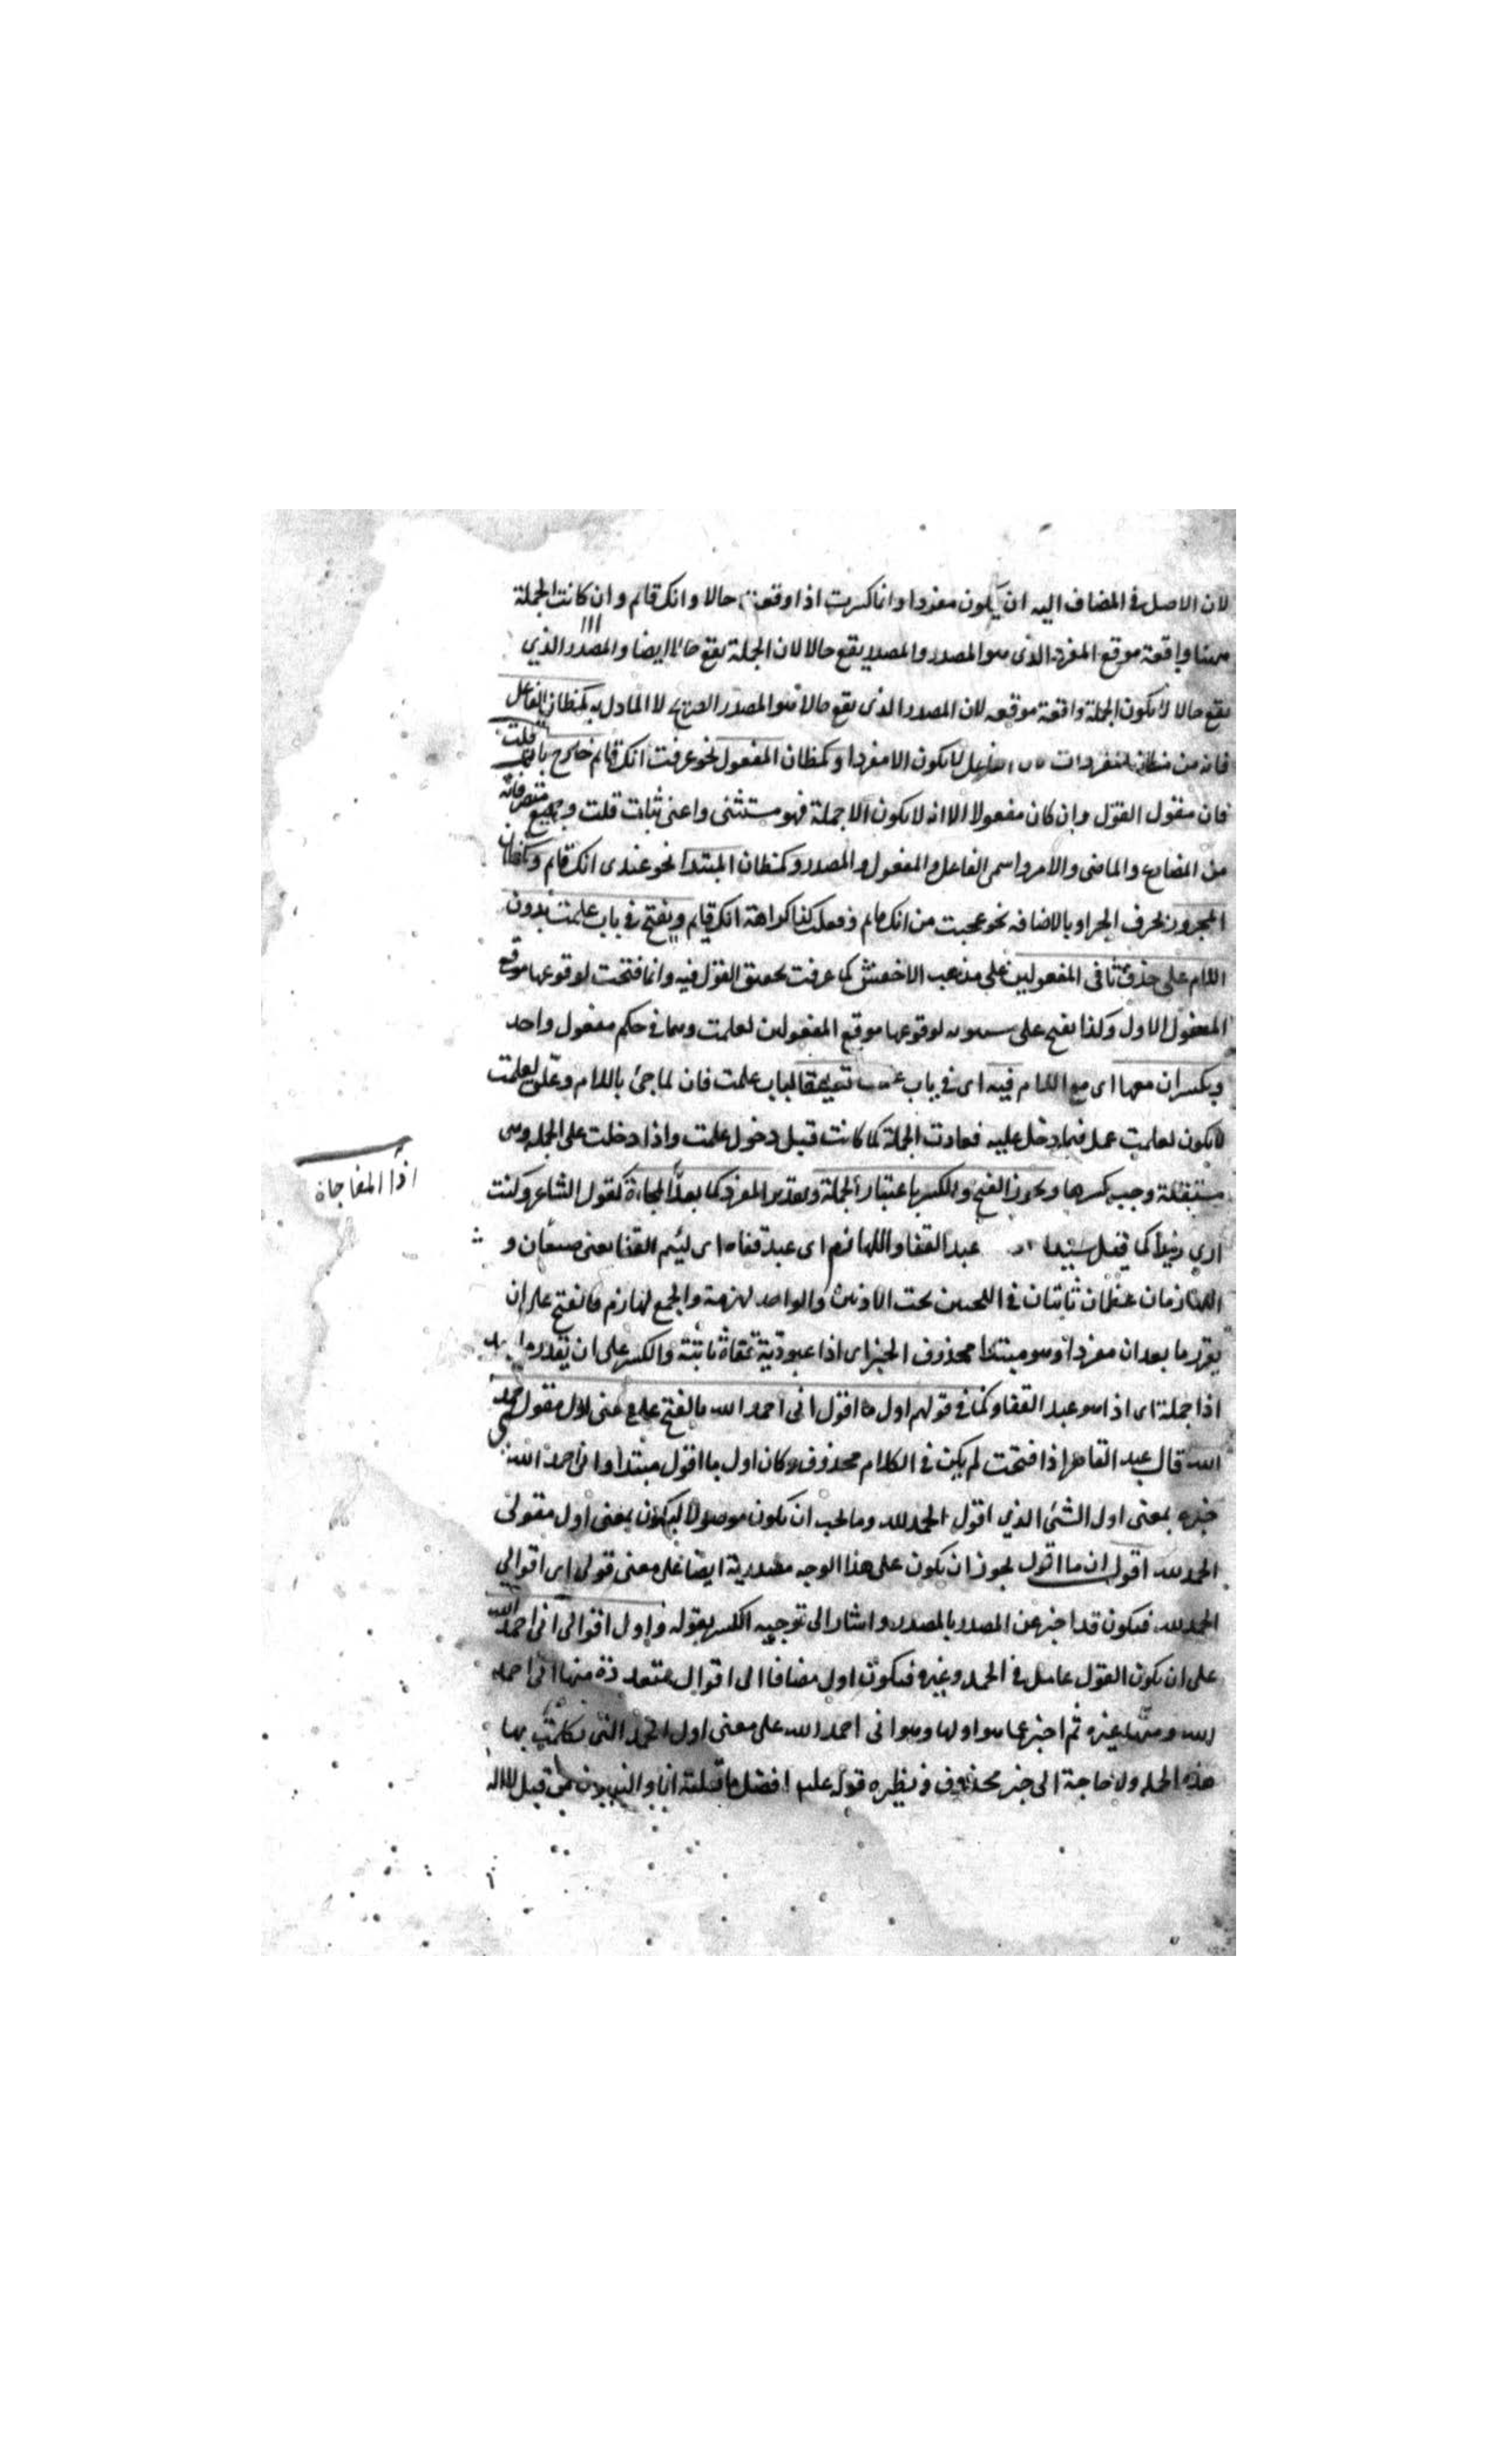 لان الاصل فى المضاف اليه ان يكون مفردا وانما كسرت اذا وقعت حالا وانك قائم وان كانت الجملة
ههنا واقعة موقع المفرد الذى هو المصدر والمصدر يقع حالا لان الجملة يقع حالا ايضا والمصدر الذي
يقع حالا لا يكون الجملة واقعة موقعه لان المصدر الذى يقع حالا هو المصدر الصريح لا المأول به كمظان الفاعل
فانه من مظان المفردات لان الفاعل لا يكون الا مفردا وكمظان المفعول نحو عرفت انك قائم خارج باب قلت
فان مقول القول وان كان مفعولا الا انه لا يكون الا جملة فهو مستثنى واعنى بباب قلت وجميع متصرفاته
من المضارع والماضى والامر واسمى الفاعل والمفعول والمصدر وكمظان المبتدا نحو عندى انك قائم وكمظان
المجرور بحرف الجر او بالاضافه نحو عجبت من انك قائم وفعلت كذا كراهة انك قائم ويفتح فى باب علمت بدون
اللام على حذف ثانى المفعولين على مذهب الاخفش كما عرفت تحقيق القول فيه وانما فتحت لوقوعها موقع
المفعول الاول وكذا يفتح على سيبويه لوقوعها موقع المفعولين لعلمت وهما فى حكم مفعول واحد
ويكسر ان معها اى مع اللام فيه اى فى باب علمت تعليقا لباب علمت فان لما جئ باللام وعلق لعلمت
لا يكون لعلمت عمل فيما دخل عليه فعادت الجملة كما كانت قبل دخول علمت واذا دخلت على الجملة وهى
مستقلة وجب كسرها ويجوز الفتح والكسر باعتبار الجملة وتقدير المفرد كما بعد اذا المفاجاة كقول الشاعر وكنت
اذا المفاجاة
ارى زيدا كما قيل سيدا عبد القفا واللهازم اى عبد قفاه اى لئيم القفا يعنى صفعان و
اللهازمان عظمان ناتئان فى اللحيين تحت الاذنين والواحد لهزمة والجمع لهازم فالفتح على ان
يقدر ما بعد ان مفردا وهو مبتدا محذوف الخبر اى اذا عبودية قفاه ثابتة والكسر على ان يقدر ما بعد
اذا جملة اى اذا هو عبد القفا وكما فى قولهم اول ما اقول انى احمد الله بالفتح على معنى اول مقولى حمد
الله قال عبد القاهر اذا فتحت لم يكن فى الكلام محذوف وكان اول ما اقول مبتدا وانى احمد الله
خبره بمعنى اول الشئ الذي اقول الحمد لله وما يجب ان يكون موصولا ليكون بمعنى اول مقولى
الحمد لله اقول ان ما اقول يجوز ان يكون على هذا الوجه مصدرية ايضا على معنى قولى اى اقوالي
الحمد لله فيكون قد اخبر عن المصدر بالمصدر واشار الى توجيه الكسر بقوله واول اقوالى انى احمد الله
على ان يكون القول عاما فى الحمد وغيره فيكون اول مضافا الى اقوال متعددة منها انى احمد
الله ومنها غيره ثم اخبر عما هو اولها وهو انى احمد الله على معنى اول الجمل التى تكلمت بها
هذه الجملة ولا حاجة الى خبر محذوف ونظيره قوله عليه افضل ما قلته انا والنبيون من قبل لا اله